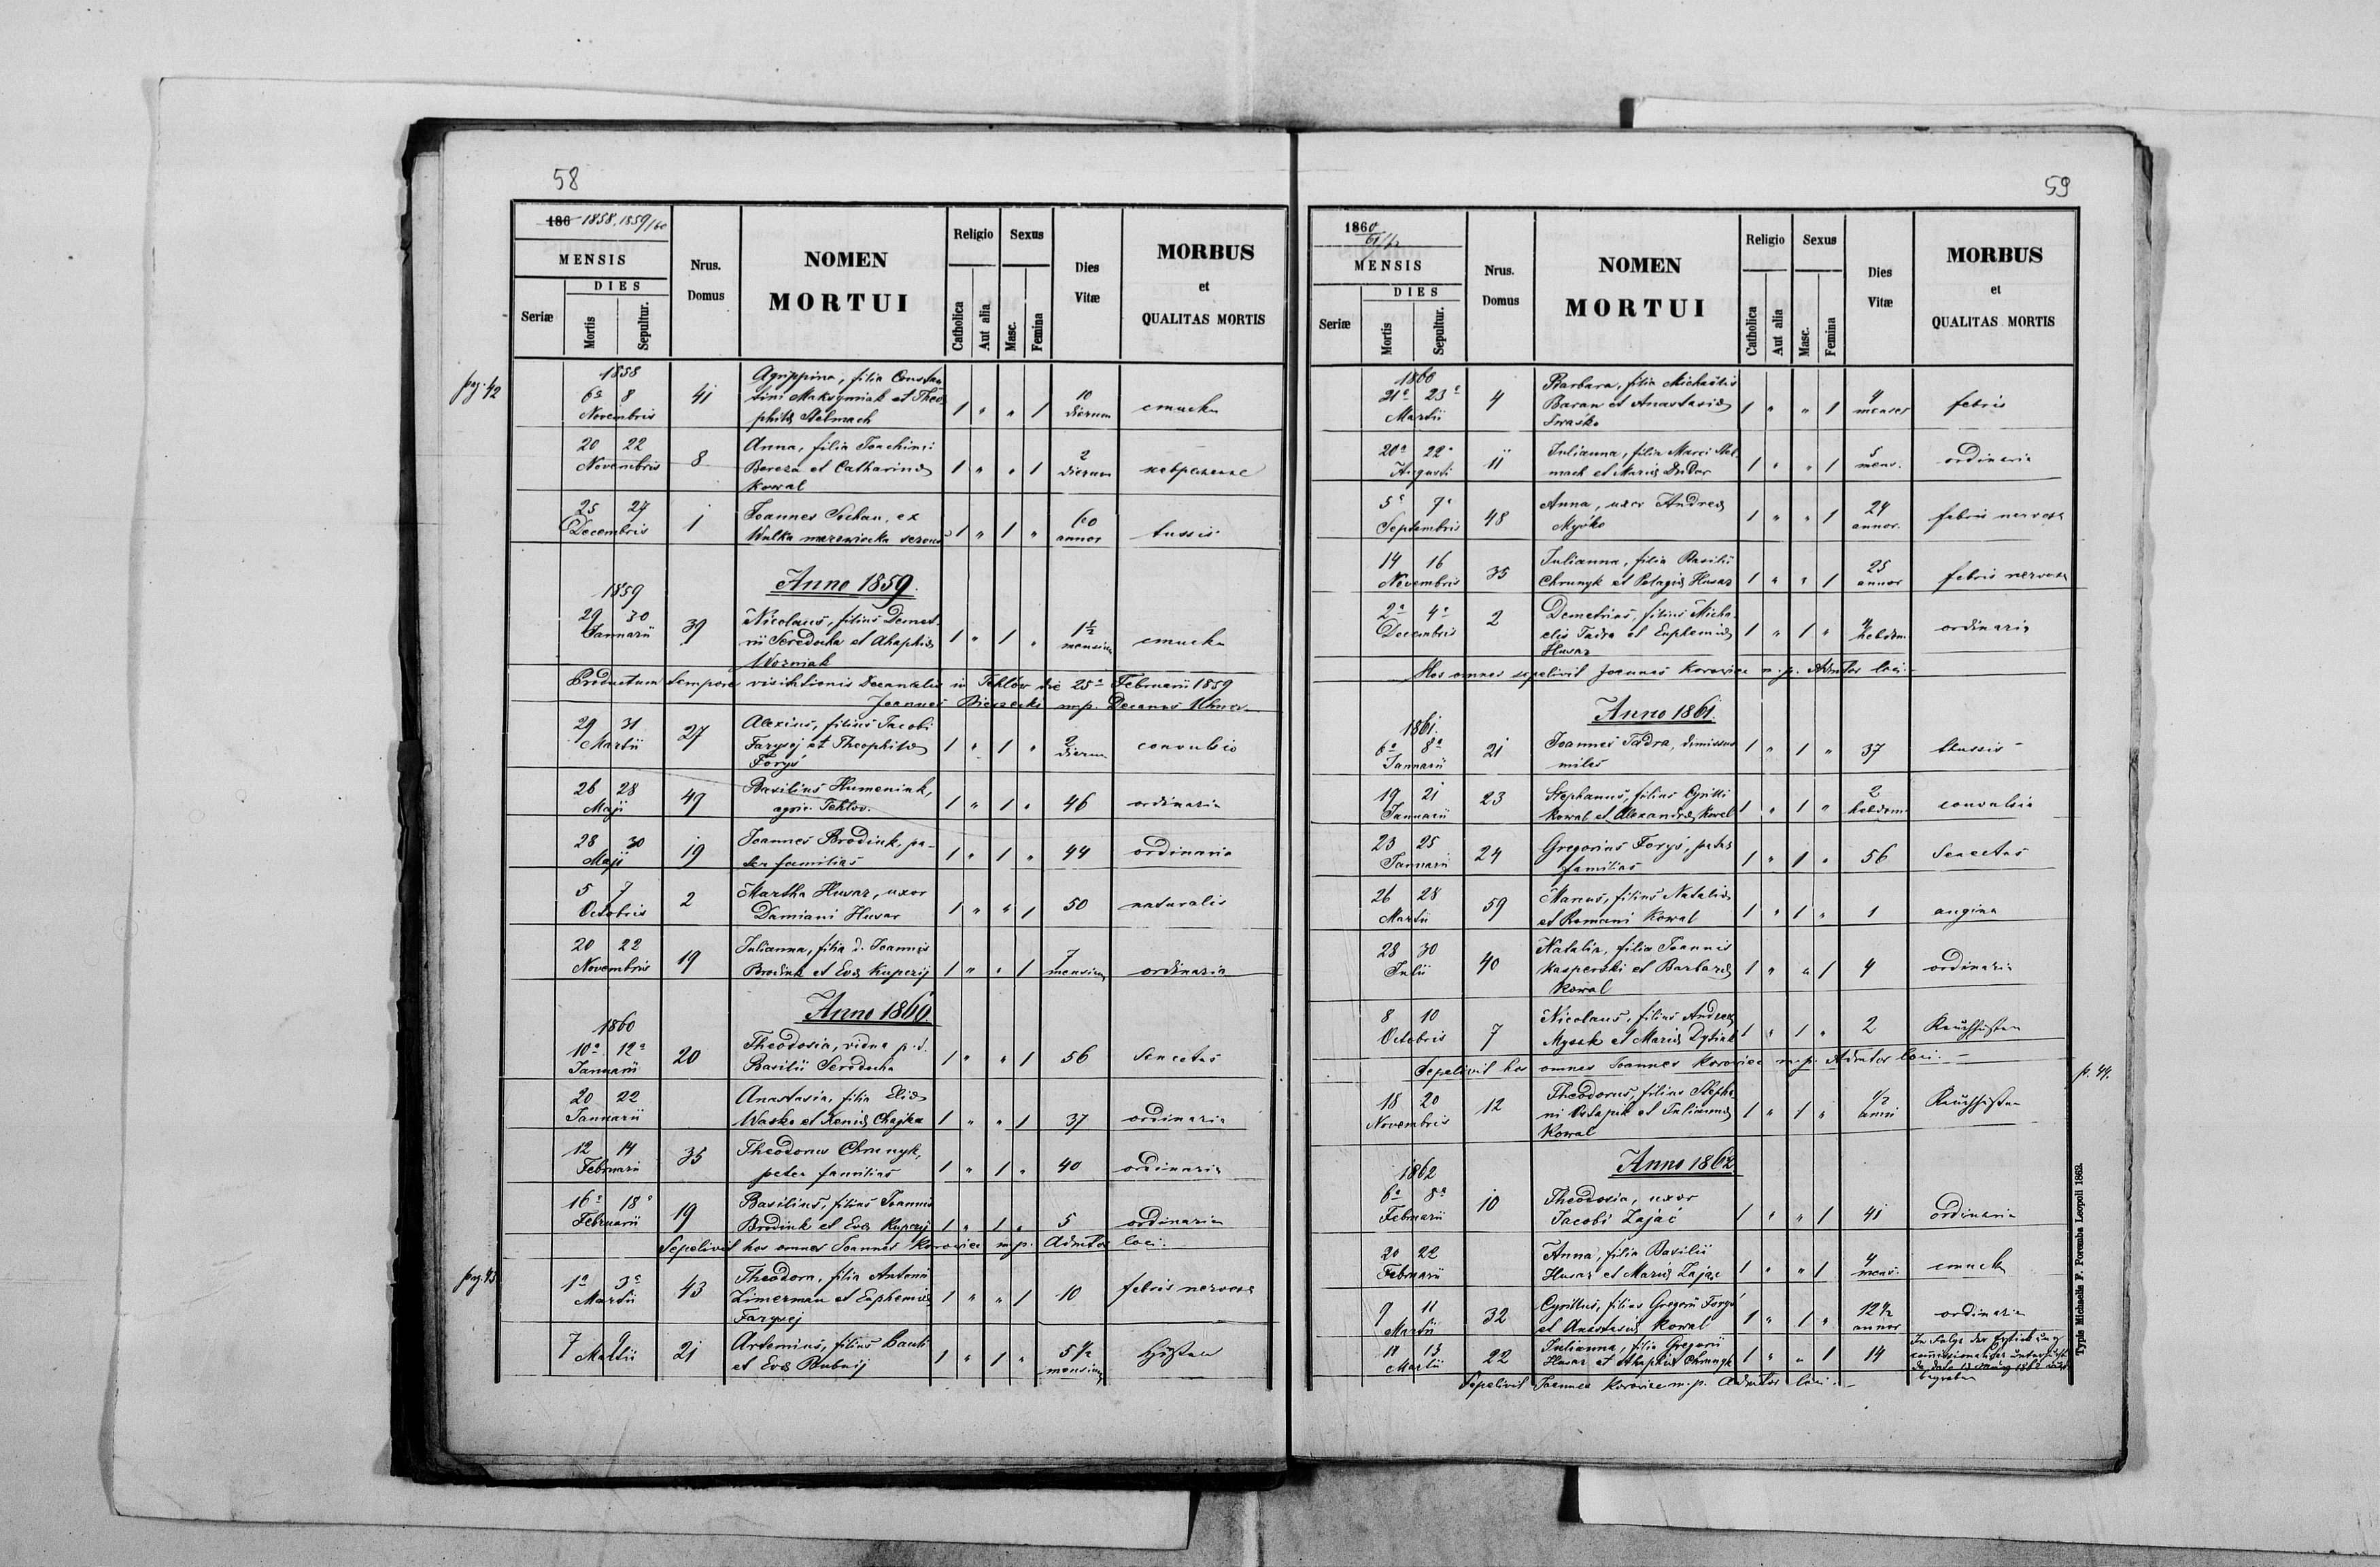 58
186 1858, 1859/60
MENSIS
DIES
Seriæ
Mortis
Sepultur.
Nrus.
Domus
NOMEN
MORTUI
Religio
Catholica
Aut alia
Sexus
Masc.
Femina
Dies
Vitæ
MORBUS
et
QUALITAS MORTIS
pag. 42
1858
6ª 8
Novembris
41
Agrippina, filia Constan
tini Maksymiak et Theo
philæ Stelmach
1 " " 1
10
dierum
emucka
20 22
Novembris
8
Anna, filia Joachimi
Bereza et Catharinæ
Kowal
1 " " 1
2
dierum
25 27
Decembris
1
Joannes Sochan, ex
Wulka
1 " 1 "
60
annor
tussis
Anno 1859.
1859
29 30
Januarii
39
Nicolaus, filius Demet-
rii Sereducha et Ahaphiæ
Wozniak
1 " 1 "
1½
mensium
emucka
Productum tempore visitationis Decanalis in Tehlow die 25ª Februarii 1859
Joannes mp. Decanus
29 31
Martii
27
Alexius, filius Jacobi
Farysej et Theophilæ
Forys
1 " 1 "
2
dierum
convulsio
26 28
Maji
49
Basilius Humeniak,
agric. Tehlov.
1 " 1 "
46
ordinaria
28 30
Maji
19
Joannes Brodiuk, pa-
ter familias
1 " 1 "
44
ordinaria
5 7
Octobris
2
Martha Husar, uxor
Damiani Husar
1 " " 1
50
naturalis
20 22
Novembris
19
Julianna, filia d. Joannis
Brodiuk et Evæ Kuperij
1 " " 1
7
mensium
ordinaria
Anno 1860.
1860
10ª 12ª
Januarii
20
Theodosia, vidua p. d.
Basilii Seroducha
1 " " 1
56
Senectus
20 22
Januarii
Anastasia, filia Eliæ
Wasko et Xeniæ Chajka
1 " " 1
37
ordinaria
12 14
Februarii
35
Theodorus Chrunyk,
pater familias
1 " 1 "
40
ordinaria
16ª 18ª
Februarii
19
Basilius, filius Joannis
Brodiuk et Evæ Kuperij
1 " 1 "
5
ordinaria
Sepelivit hos omnes Joannes Korowiec mp. Admtor loci.
pag. 43
1ª 3ª
Martii
43
Theodora, filia Antonii
Zimerman et Euphemiæ
Farysej
1 " " 1
10
febris nervosa
7 9
Martii
21
Artemius, filius Pauli
et Evæ
1 " 1 "
5½
mensium
Husten
59
1860
61/62
MENSIS
DIES
Seriæ
Mortis
Sepultur.
Nrus.
Domus
NOMEN
MORTUI
Religio
Catholica
Aut alia
Sexus
Masc.
Femina
Dies
Vitæ
MORBUS
et
QUALITAS MORTIS
1860
21ª 23ª
Martii
4
Barbara, filia Michaëlis
Baran et Anastasiæ
Iwasko
1 " " 1
4
menses
febris
20ª 22ª
Augusti
11
Julianna, filia Marci Stel
mach et Mariæ Dudar
1 " " 1
5
mens.
ordinaria
5ª 7ª
Septembris
48
Anna, uxor Andreæ
Mysko
1 " " 1
24
annor.
febris nervosa
14 16
Novembris
35
Julianna, filia Basilii
Chrunyk et Pelagiæ Husar
1 " " 1
25
annor
febris nervosa
2ª 4ª
Decembris
2
Demetrius, filius Micha-
elis Tadra et Euphemiæ
Husar
1 " 1 "
4
hebdom.
ordinaria
Hos omnes sepelivit Joannes Korowiec m.p. Admtor loci.
Anno 1861.
1861.
6ª 8ª
Januarii
21
Joannes Tadra, dimissus
miles
1 " 1 "
37
tussis
19 21
Januarii
23
Stephanus, filius Cyrilli
Kowal et Alexandræ Kowal
1 " 1 "
2
hebdom
convulsio
23 25
Januarii
24
Gregorius Forys, pater
familias
1 " 1 "
56
Senectus
26 28
Martii
59
Marcus, filius Nataliæ
et Romani Kowal
1 " 1 "
1
angina
28 30
Julii
40
Natalia, filia Joannis
Kasperski et Barbaræ
Kowal
1 " " 1
4
ordinaria
8 10
Octobris
7
Nicolaus, filius Andreæ
Myszk et Mariæ Dytiuk
1 " 1 "
2
Keuchhusten
Sepelivit hos omnes Joannes Korowiec m.p. Admtor loci.
p. 44.
18 20
Novembris
12
Theodorus, filius Stepha
ni Ostapik et Juliannæ
Kowal
1 " 1 "
½
anni
Keuchhusten
Anno 1862
1862
6ª 8ª
Februarii
10
Theodosia, uxor
Jacobi Zając
1 " " 1
41
ordinaria
20 22
Februarii
Anna, filia Basilii
Husar et Mariæ Zając
1 " " 1
4
mens.
emucka
9 11
Martii
32
Cyrillus, filius Gregorii Forys
et Anastasiæ Kowal
1 " 1 "
12½
annor
ordinaria
11 13
Martii
22
Julianna, filia Gregorii
Husar et Ahaphiæ Chrunyk
1 " " 1
14
In Folge der
begraben
Sepelivit Joannes Korowiec m.p. Admtor loci.
Typis Michaelis F. Poremba Leopoli 1862.